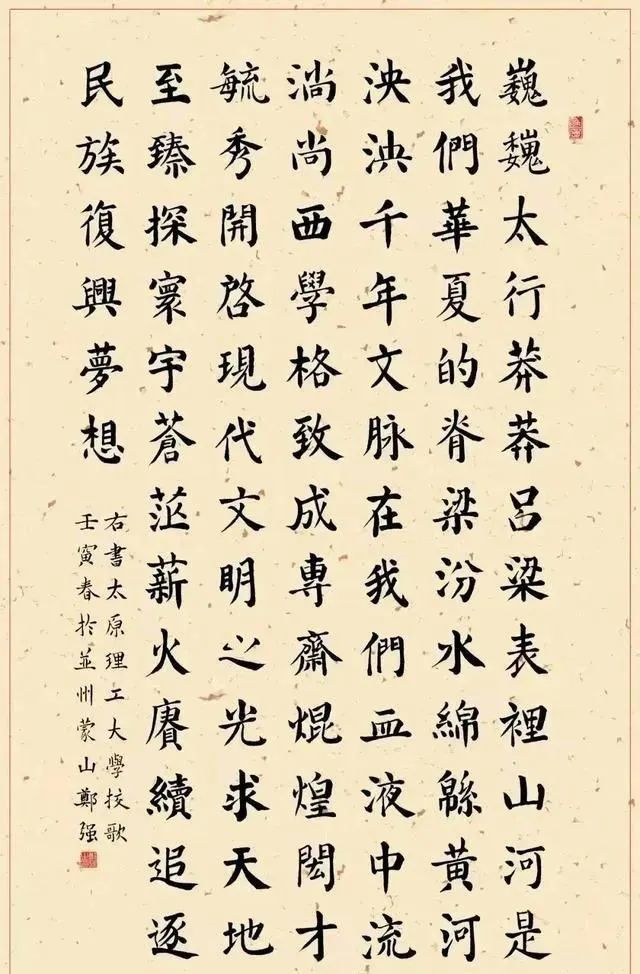 巍巍太行莽莽吕梁表裡山河是
我們華夏的脊梁汾水綿緜黃河
泱泱千年文脉在我們血液中流
淌尚西學格致成專齋焜煌閎才
毓秀開啓現代文明之光求天地
至臻探寰宇蒼茫薪火賡續追逐
民族復興夢想
右書太原理工大學校歌
壬寅春於並州蒙山鄭强